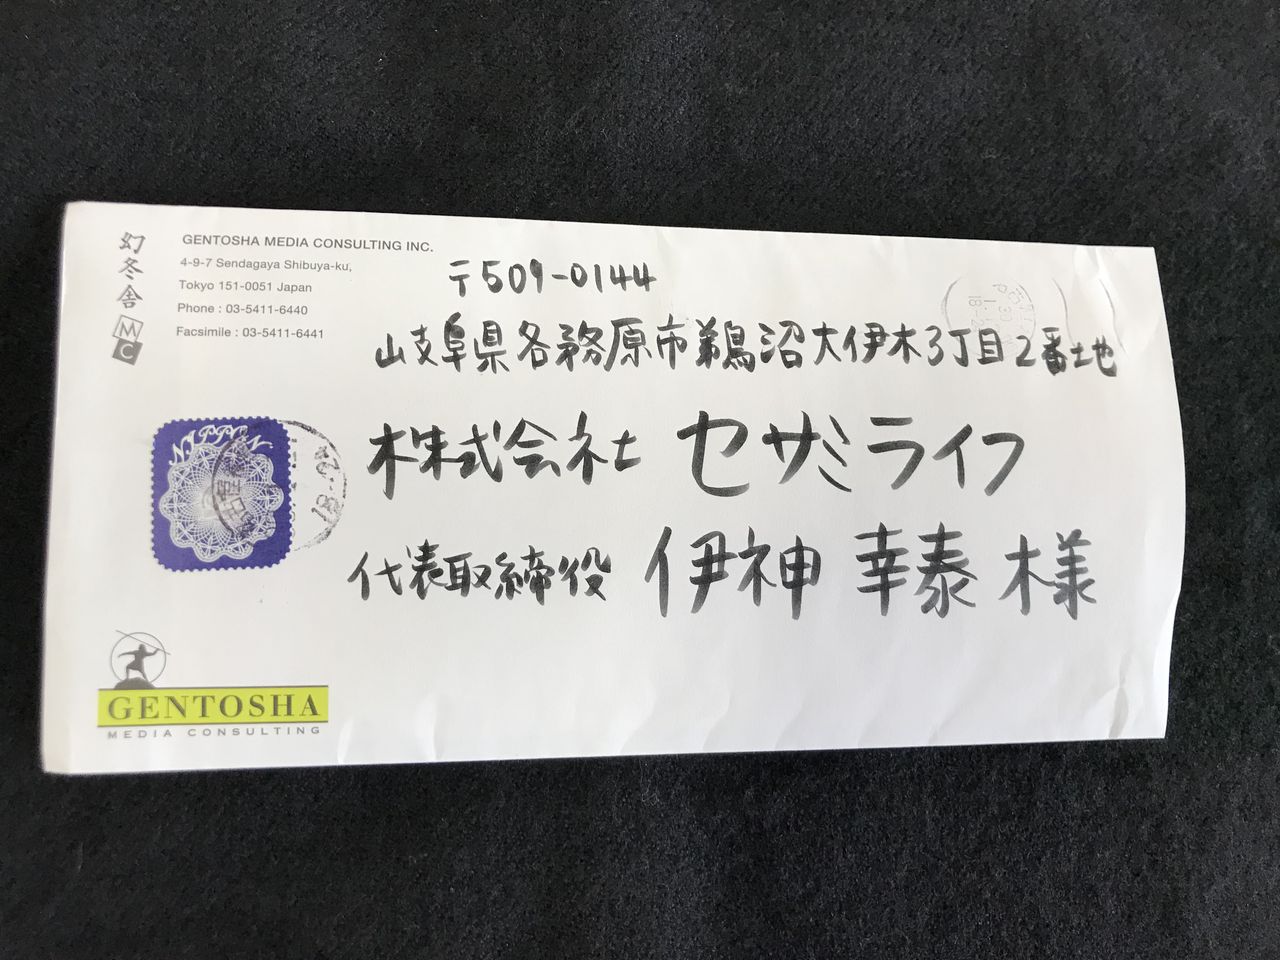 幻冬舎
MC
GENTOSHA MEDIA CONSULTING INC.
4-9-7 Sendagaya Shibuya-ku,
Tokyo 151-0051 Japan
Phone : 03-5411-6440
Facsimile : 03-5411-6441
〒509-0144
山岐阜県各務原市鵜沼大伊木3丁目2番土地
株式会社 セサミライフ
代表取締役 伊神 幸泰 様
NIPPON
18-24
GENTOSHA
MEDIA CONSULTING